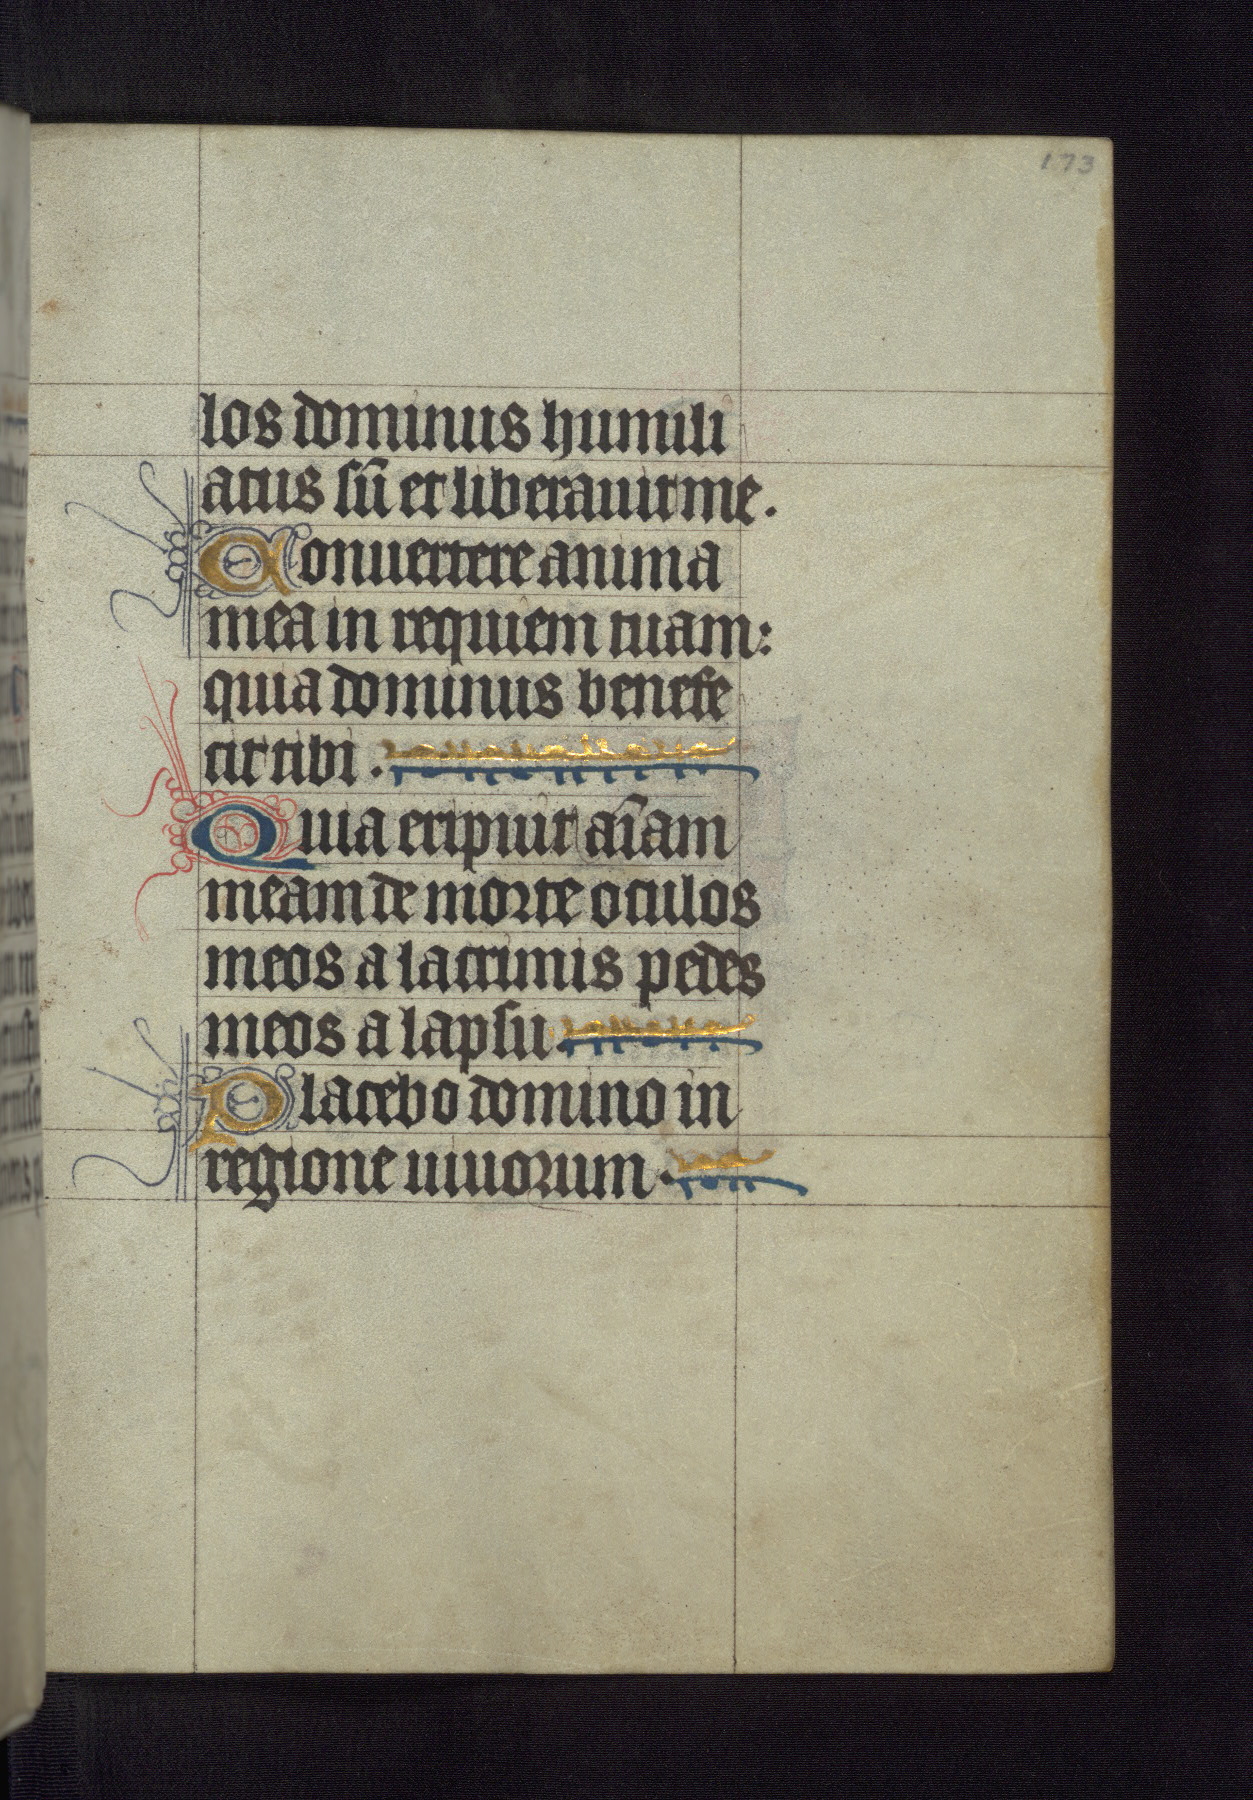 173
los dominus humili
atus sū et liberauit me.
Conuertere anima
mea in requiem tuam:
quia dominus benefe
cit tibi.
Quia eripuit aīam
meam de morte oculos
meos a lacrimis pedes
meos a lapsu.
Placebo domino in
regione uiuorum.